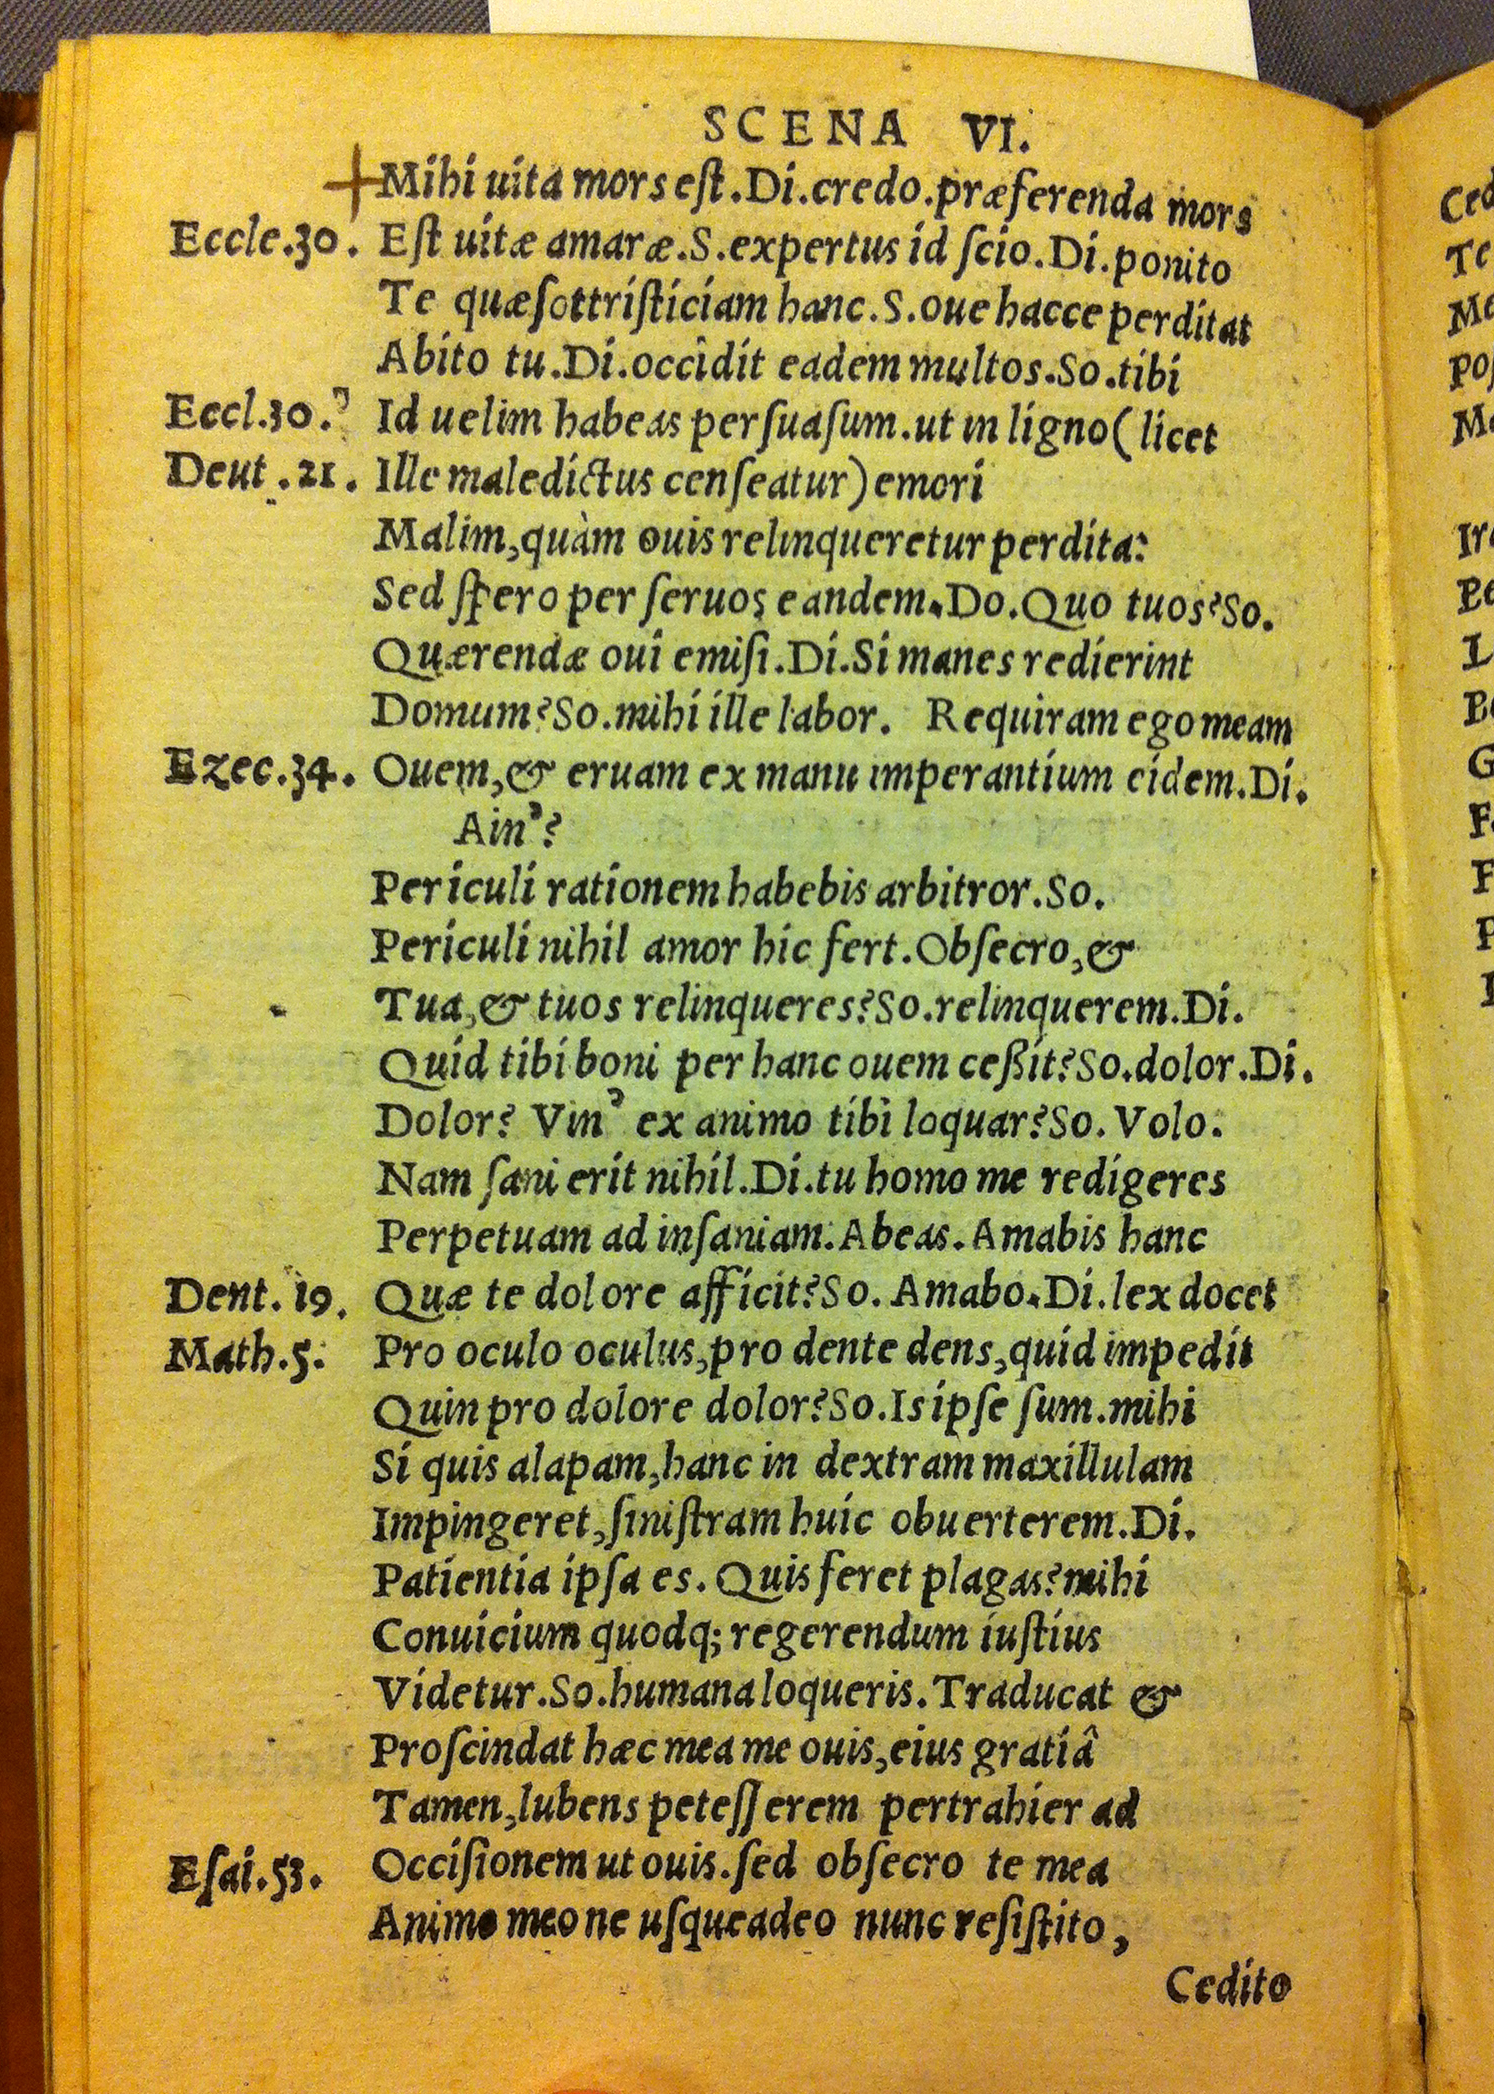 SCENA VI.
Mihi uita mors est.Di.credo.præferenda mors
Eccle.30. Est uitæ amaræ.S.expertus id ſcio.Di.ponito
Te quæſo ttristiciam hanc.S.oue hacce perditat
Abito tu.Di.occidit eadem multos.So.tibi
Eccl.30. Id uelim habeas perſuaſum.ut in ligno(licet
Deut.21. Ille maledictus cenſeatur)emori
Malim,quàm ouis relinqueretur perdita:
Sed ſpero per ſeruos eandem.Do.Quo tuos?So.
Quærendæ oui emiſi.Di.Si manes redierint
Domum?So.mihi ille labor. Requiram ego meam
Ezec.34. Ouem,& eruam ex manu imperantium eidem.Di.
Ain'?
Periculi rationem habebis arbitror.So.
Periculi nihil amor hic fert.Obſecro,&
Tua,& tuos relinqueres?So.relinquerem.Di.
Quid tibi boni per hanc ouem ceßit?So.dolor.Di.
Dolor? Vin' ex animo tibi loquar?So.Volo.
Nam ſani erit nihil.Di.tu homo me redigeres
Perpetuam ad inſaniam.Abeas.Amabis hanc
Dent.19. Quæ te dolore afficit?So.Amabo.Di.lex docet
Math.5. Pro oculo oculus,pro dente dens,quid impedit
Quin pro dolore dolor?So.Is ipſe ſum.mihi
Si quis alapam,hanc in dextram maxillulam
Impingeret,ſinistram huic obuerterem.Di.
Patientia ipſa es.Quis feret plagas?mihi
Conuicium quodq; regerendum iustius
Videtur.So.humana loqueris.Traducat &
Proſcindat hæc mea me ouis,eius gratiâ
Tamen,lubens peteſſerem pertrahier ad
Eſai.53. Occiſionem ut ouis.ſed obſecro te mea
Animo meo ne uſqueadeo nunc reſistito,
Cedito